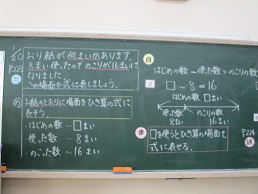 10
おり紙が何まいかあります。
8まい使ったので のこりが16まいに
なりました。
この場面を式に表しましょう。
め お話のとおりに場面をひき算の式に
表そう。
はじめの数 … □まい
使った数 … 8まい
のこった数 … 16まい
はじめの数 − 使った数 = のこりの数
□ − 8 = 16
はじめの数 □まい
使った数
8まい
のこりの数
16まい
ま □を使うとひき算の場面も
式に表せる。